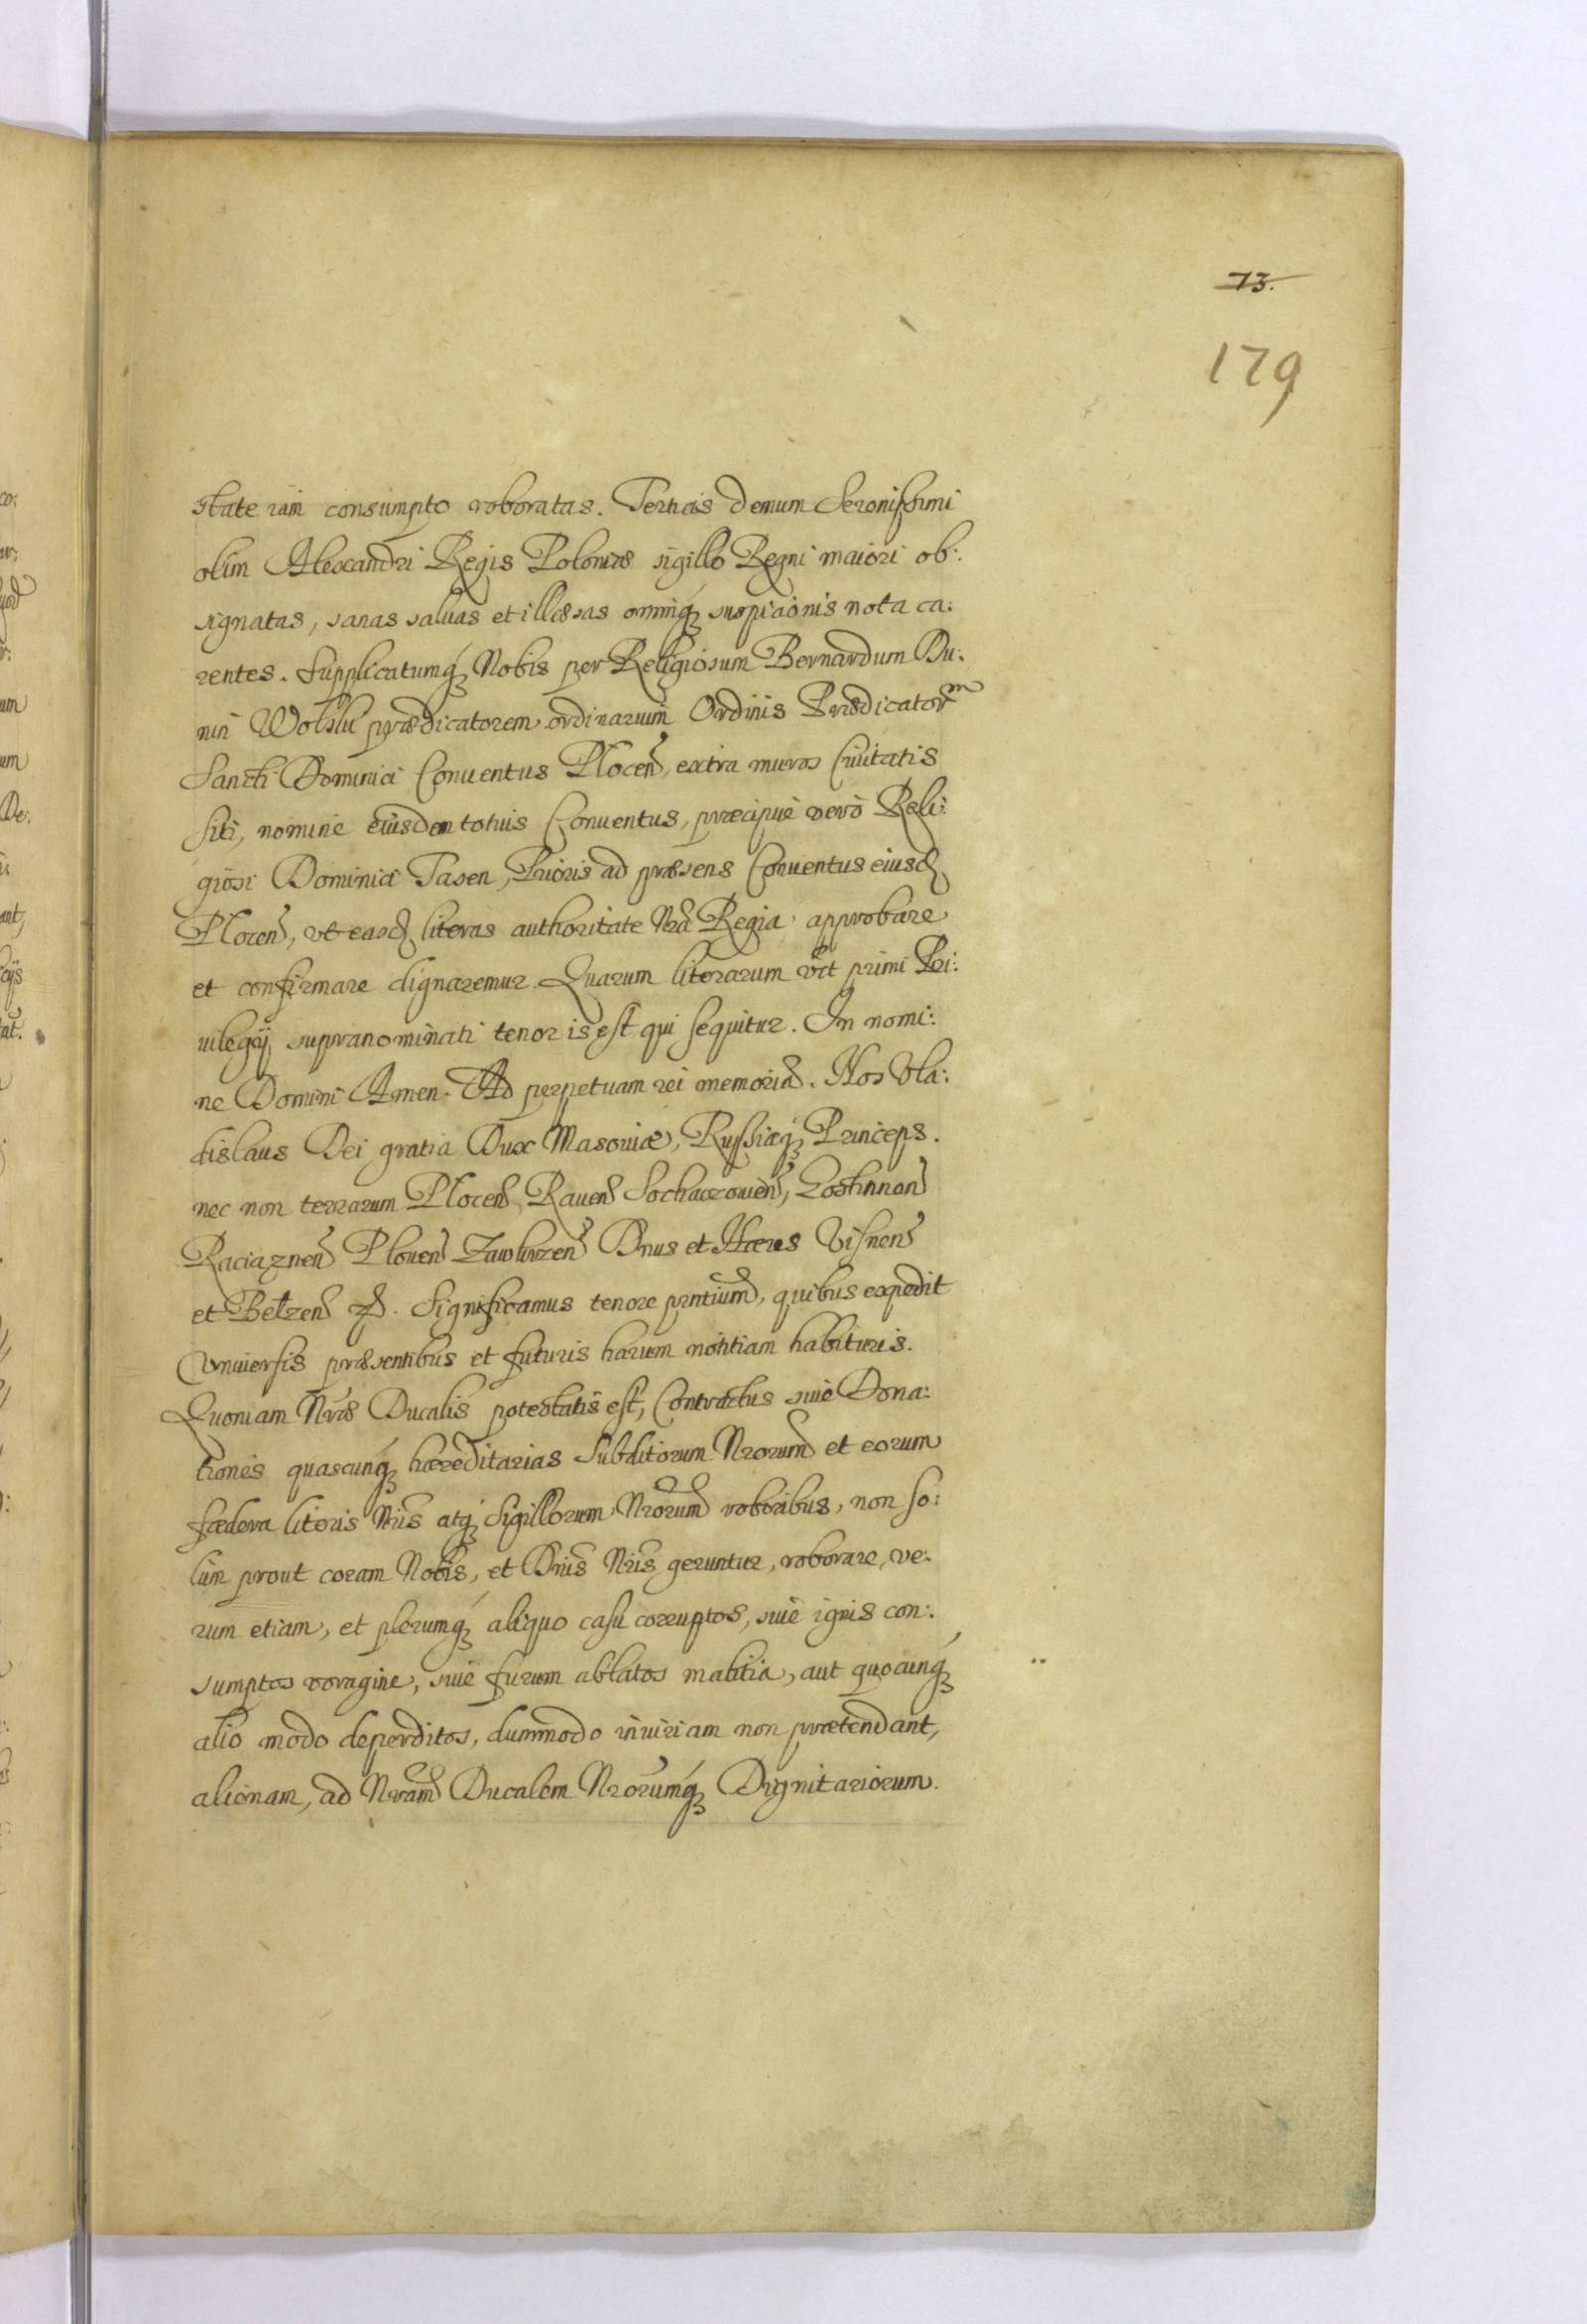 73.
179
state iam consumpto roboratas. Tertias demum Serenissimi
olim Alexandri Regis Poloniæ sigillo Regni maiori ob:
signatas, sanas saluas et illæsas omniq́ꝫ suspicionis nota ca:
rentes. Supplicatumq́ꝫ Nobis per Religiosum Bernardum Du:
nin Wolski prædicatorem ordinarium Ordinis Prædicatorm
Sancti Dominici Conuentus Plocen̄, extra muros Ciuitatis
siti, nomine eiusdem totius Conuentus, præcipuè verò Reli:
giosi Dominici Tasen, Prioris ad præsens Conuentus eiusd
Plocen̄, vt easd literas authoritate Nrā Regia approbare
et confirmare dignaremur. Quarum literarum vt̄ primi Pri:
uilegij supranominati tenor is est qui sequitur. In nomi:
ne Domini Amen. Ad perpetuam rei memoriā. Nos Vla:
dislaus Dei gratia Dux Masouiæ, Russiæq́ꝫ Princeps.
nec non terrarum Plocen̄ Rauen̄ Sochaczouien̄, Gostinnen̄
Raciąznen̄ Plouen̄ Zawkrzen̄ Dnus et Hæres Visnen̄
et Belzen̄ ꝛc̄. Significamus tenore pn̄tium̄, quibus expedit
Vniuersis præsentibus et futuris harum notitiam habituris.
Quoniam Nr̄æ Ducalis potestatis est, Contractus siuè Dona:
tiones quascunq́ꝫ hæreditarias Subditorum Nrorum̄ et eorum
fædera literis Nris̄ atq́ꝫ Sigillorum Nrorum̄ roboribus, non so:
lùm prout coram Nobis, et Dnis̄ Nris̄ geruntur, roborare, ve:
rum etiam, et plerumq́ꝫ aliquo casu corruptos, siuè ignis con:
sumptos voragine, siuè furum ablatos malitia, aut quocunq́ꝫ
alio modo deperditos, dummodo iniuriam non prætendant,
alienam, ad Nram̄ Ducalem Nrorumq́ꝫ Dignitariorum.